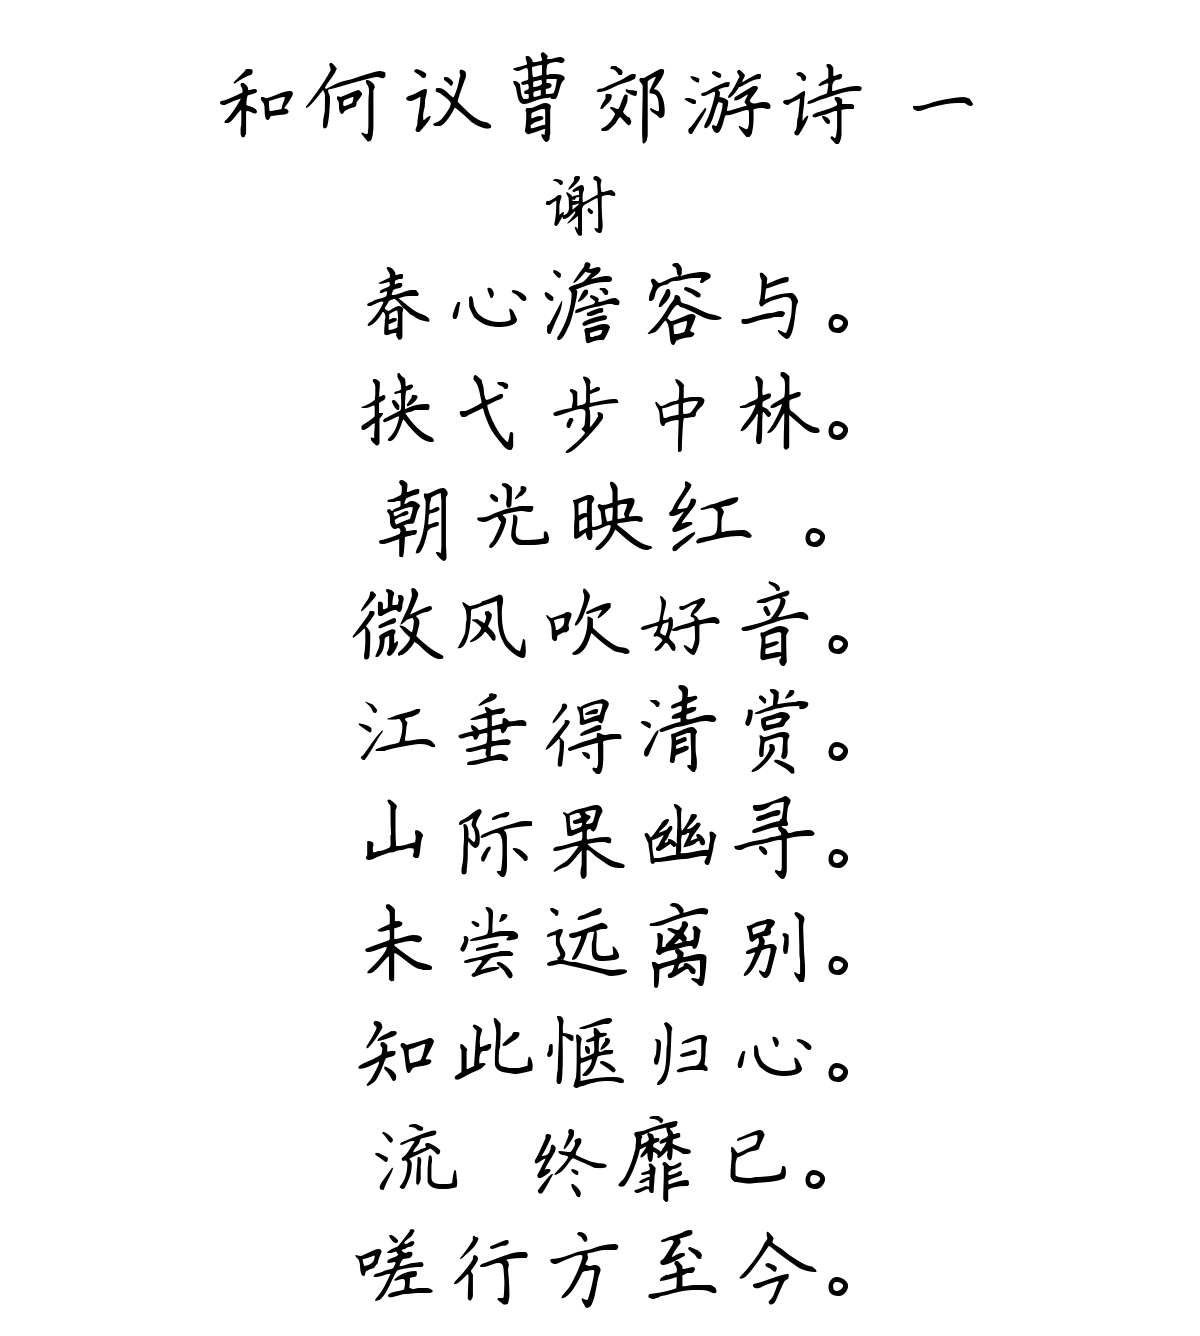 和何议曹郊游诗 一
谢
春心澹容与。
挟弋步中林。
朝光映红 。
微风吹好音。
江垂得清赏。
山际果幽寻。
未尝远离别。
知此惬归心。
流 终靡已。
嗟行方至今。